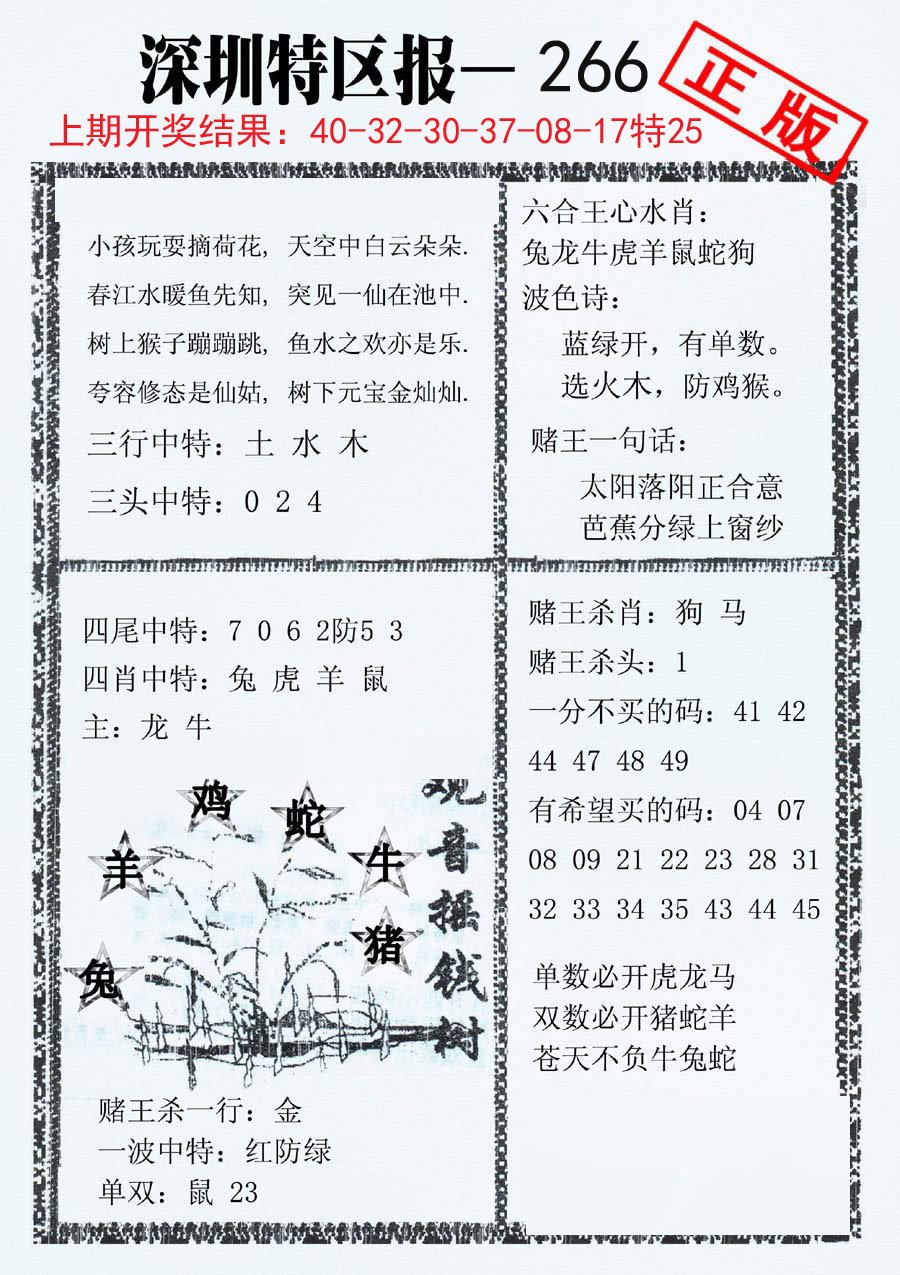 深圳特区报—266
正版
上期开奖结果：40-32-30-37-08-17特25
小孩玩耍摘荷花, 天空中白云朵朵.
春江水暖鱼先知, 突见一仙在池中.
树上猴子蹦蹦跳, 鱼水之欢亦是乐.
夸容修态是仙姑, 树下元宝金灿灿.
三行中特：土 水 木
三头中特：0 2 4
六合王心水肖：
兔龙牛虎羊鼠蛇狗
波色诗：
蓝绿开，有单数。
选火木，防鸡猴。
赌王一句话：
太阳落阳正合意
芭蕉分绿上窗纱
四尾中特：7 0 6 2防5 3
四肖中特：兔 虎 羊 鼠
主：龙 牛
鸡
蛇
羊
牛
猪
兔
观音摇钱树
赌王杀一行：金
一波中特：红防绿
单双：鼠 23
赌王杀肖：狗 马
赌王杀头：1
一分不买的码：41 42
44 47 48 49
有希望买的码：04 07
08 09 21 22 23 28 31
32 33 34 35 43 44 45
单数必开虎龙马
双数必开猪蛇羊
苍天不负牛兔蛇